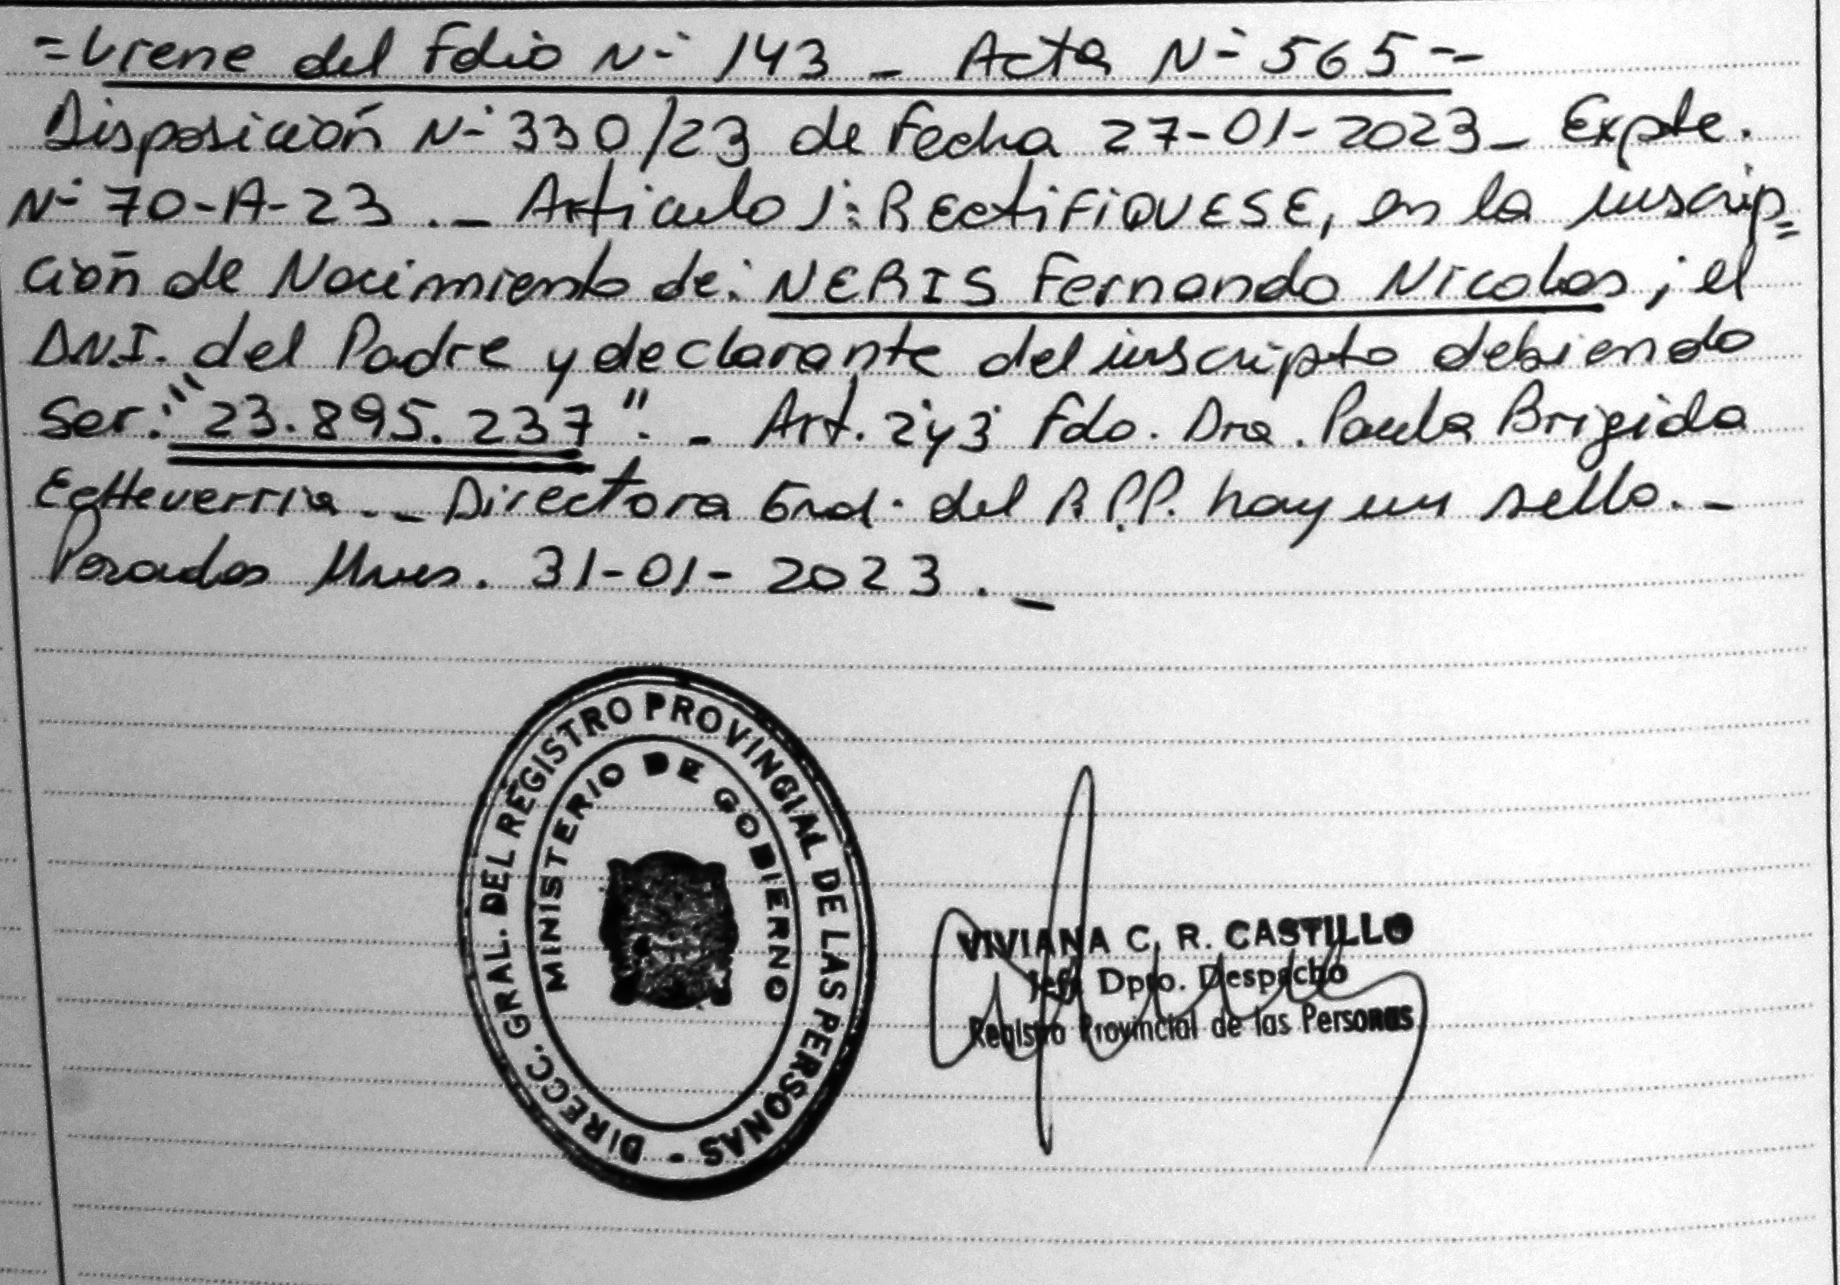 =Viene del Folio N- 143 _ Acta N- 565--
Disposición N- 330/23 de Fecha 27-01-2023_ Expte.
N- 70-A-23._ Articulo 1: RECTIFIQUESE, en la inscrip=
ción de Nacimiento de: NERIS Fernando Nicolas; el
D.N.I. del Padre y declarante del inscripto debiendo
Ser: "23.895.237". - Art. 2 y 3 Fdo. Dra. Paula Brigida
Echeverria._ Directora Gral. del R.P.P. hay un sello._
Posadas Mnes. 31-01-2023._
DIRECC. GRAL. DEL REGISTRO PROVINCIAL DE LAS PERSONAS -
MINISTERIO DE GOBIERNO
VIVIANA C. R. CASTILLO
Jefe Dpto. Despacho
Registro Provincial de las Personas